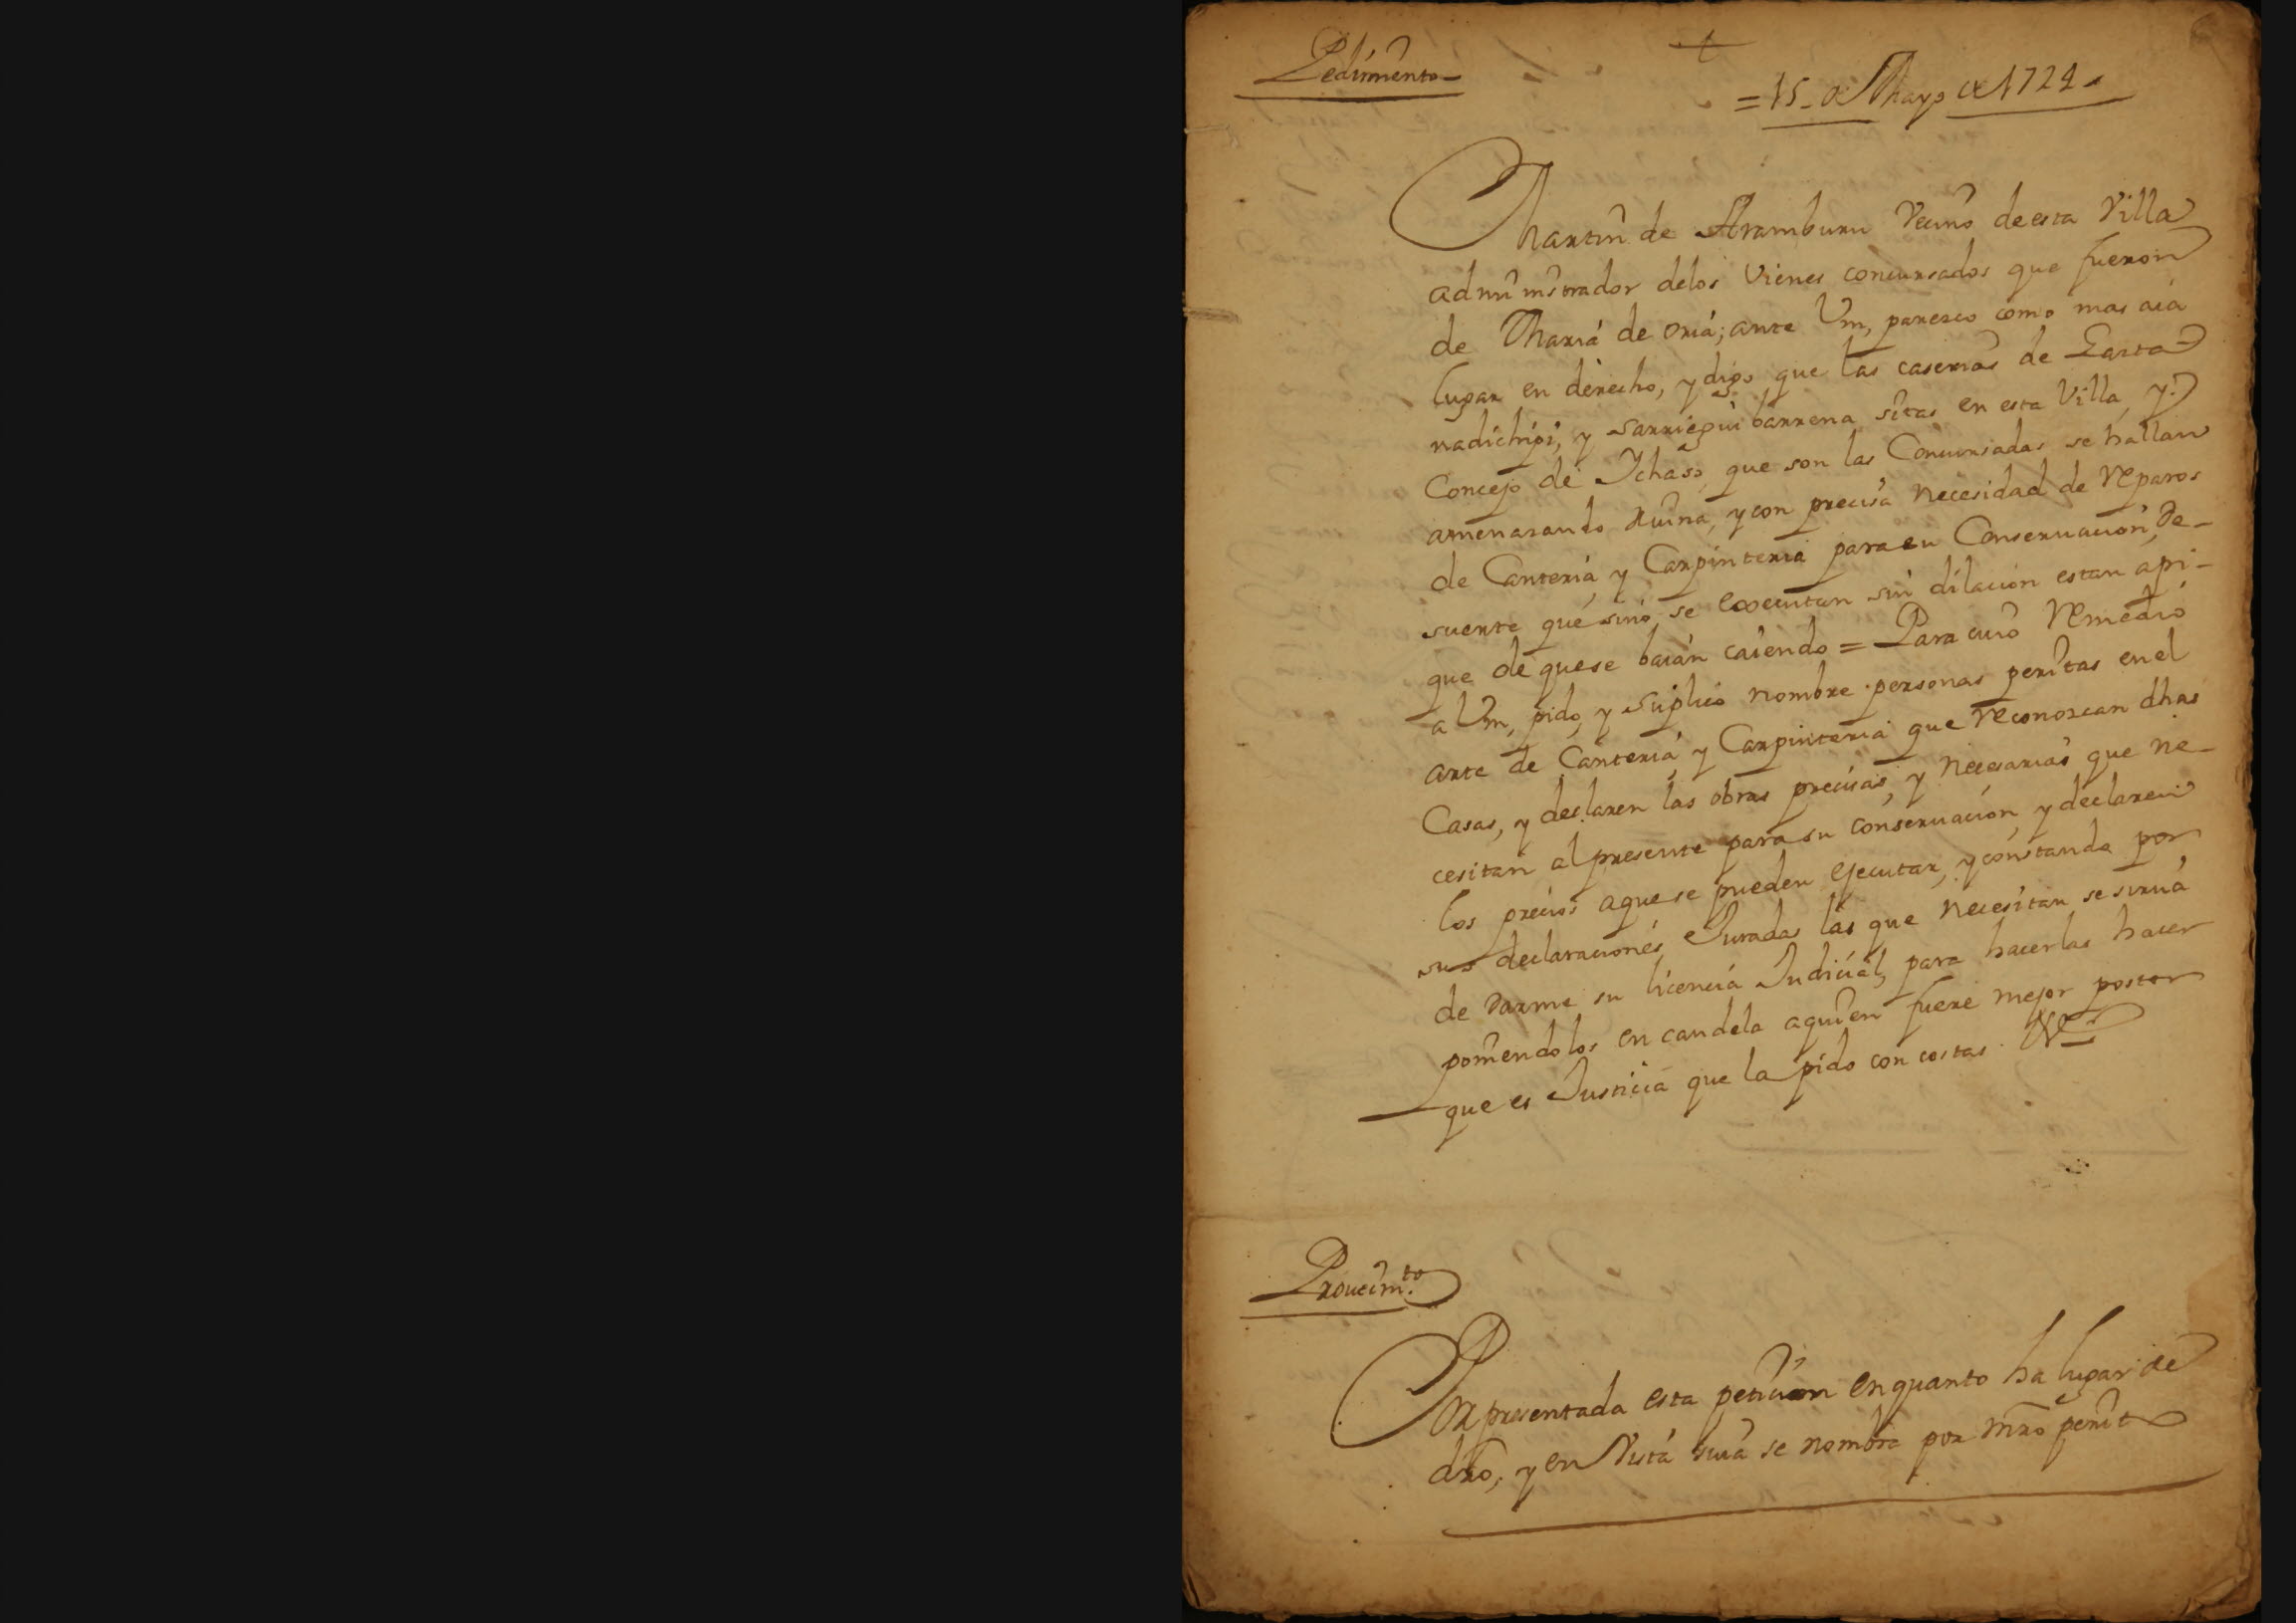 Pedimento
= 15 - de Mayo de 1724
Martin de Aramburu Vecino de esta Villa
administrador delos Vienes concursados que fueron
de Maria de oria; ante Vm, paresco como mas aia
lugar en derecho, y digo que las caserias de Garta
nadichipi, y sarriegui barrena sitas en esta Villa, y
Concejo de Ichaso, que son las Concursadas se hallan
amenasando Ruina, y con precisa necesidad de Reparos
de Canteria, y Carpinteria para su Conseruacion, de-
suerte que sino se executan sin dilacion estan api-
que de que se baian caiendo = Para cuio Remedio
a Vm, pido, y suplico nombre personas peritas en el
arte de Canteria, y Carpinteria que Reconozcan dhas
Casas, y declaren las obras precisas, y necesarias que ne-
cesitan al presente para su conseruacion, y declaren
los precios aque se pueden ejecutar, y constando por
sus declaraciones Juradas las que necesitan se sirua
de darme su licencia Judicial, para hacerlas hacer
poniendolos en candela aquien fuere mejor postor
que es Justicia que la pido con costas
Proueim.to
Por presentada esta peticion en quanto ha lugar de
dro, y en Vista suia se nombra por mro perito